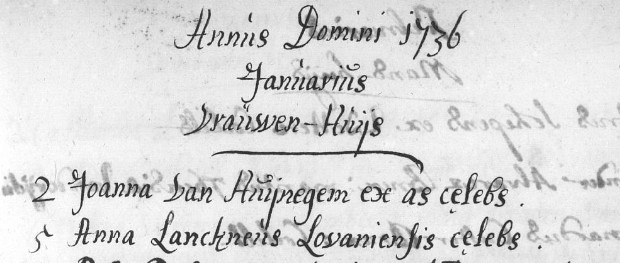 Annus Domini 1736
Januarius
Vrauwen-Huijs
2 Joanna Van Huijnegem ex as celebs.
5 Anna Lanckneus Lovaniensis celebs.